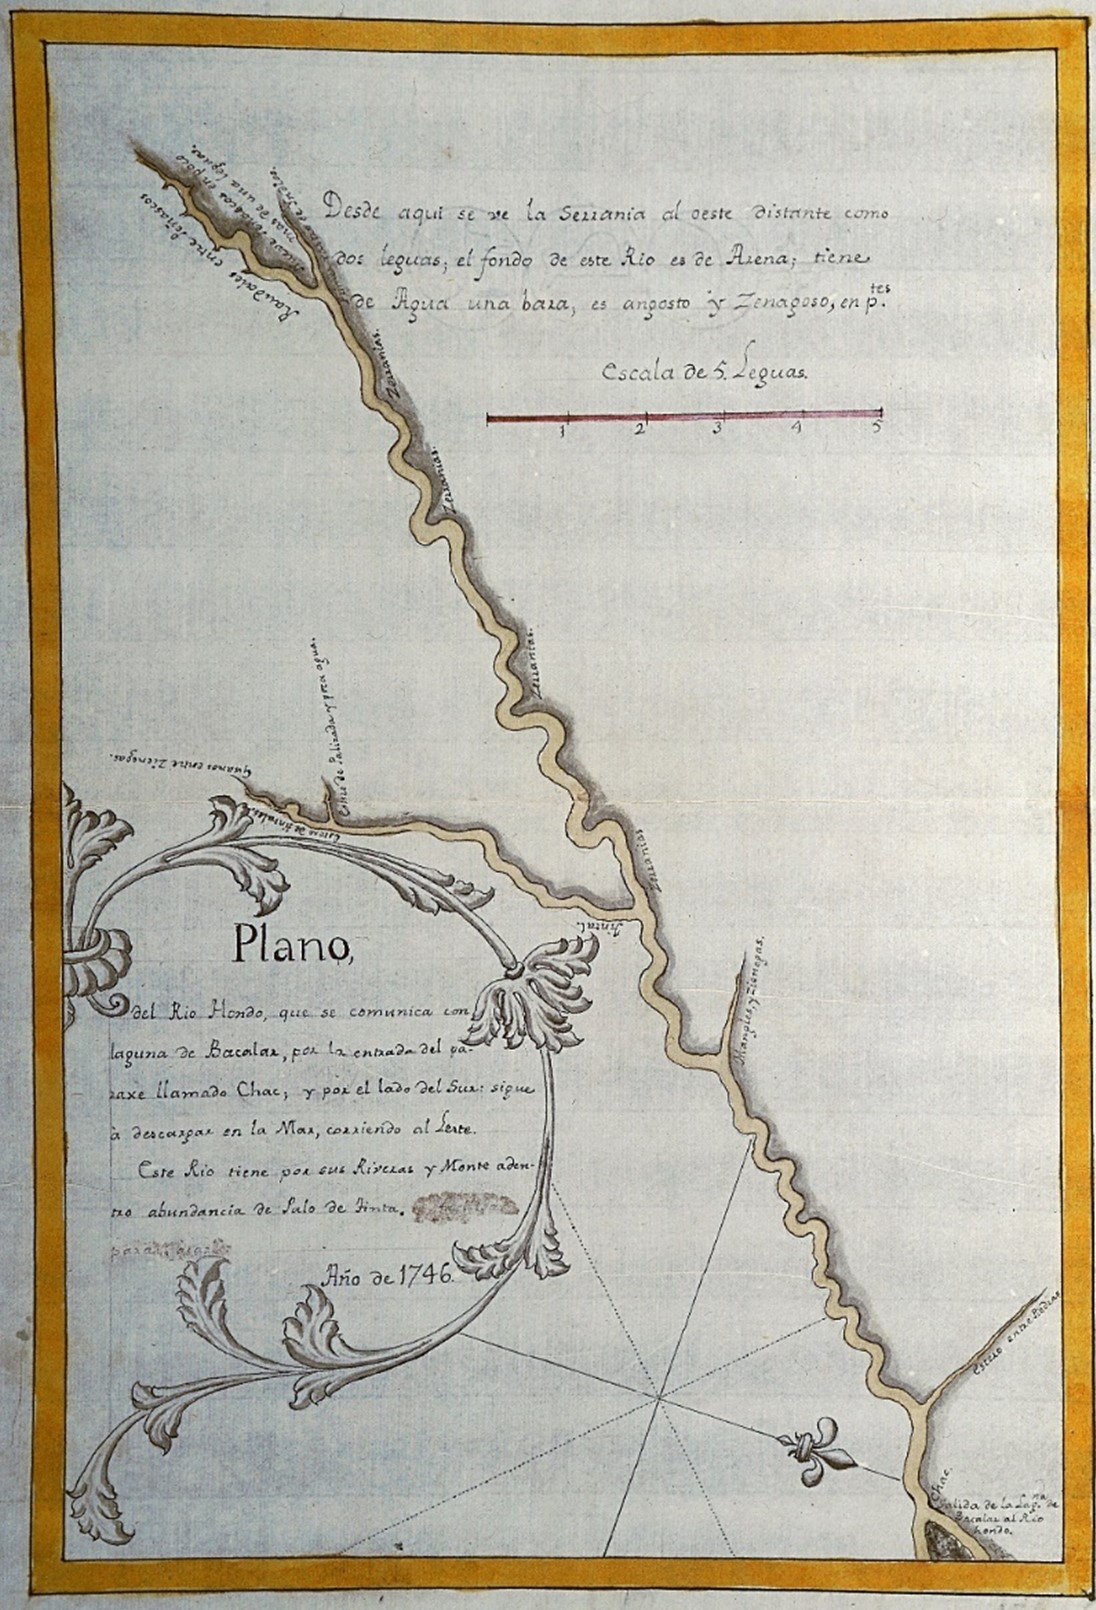 Raudales entre Peñascos
nueve Peñascos en poco
mas de una legua.
Desde aqui se ve la Serrania al oeste distante como
dos leguas; el fondo de este Rio es de Arena; tiene
de Agua una bara, es angosto y Zenagoso, en p.tes
Escala de 5. Leguas.
1 2 3 4 5
Zerranias.
Zerranias.
Zerranias.
Zerranias
Guanos entre Zienegas.
Estero de Palizada y poca agua.
Estero de Pintales.
Tintal.
Manglès, y Zienegas.
Plano,
del Rio Hondo, que se comunica con
laguna de Bacalar, por la entrada del pa-
raxe llamado Chac; y por el lado del Sur: sigue
à descargar en la Mar, corriendo al Leste.
Este Rio tiene por sus Riveras y Monte aden-
tro abundancia de Palo de Tinta.
para
Año de 1746.
Estero entre Piedras
Chac.
Salida de la Lag.na de
Bacalar al Rio
hondo.